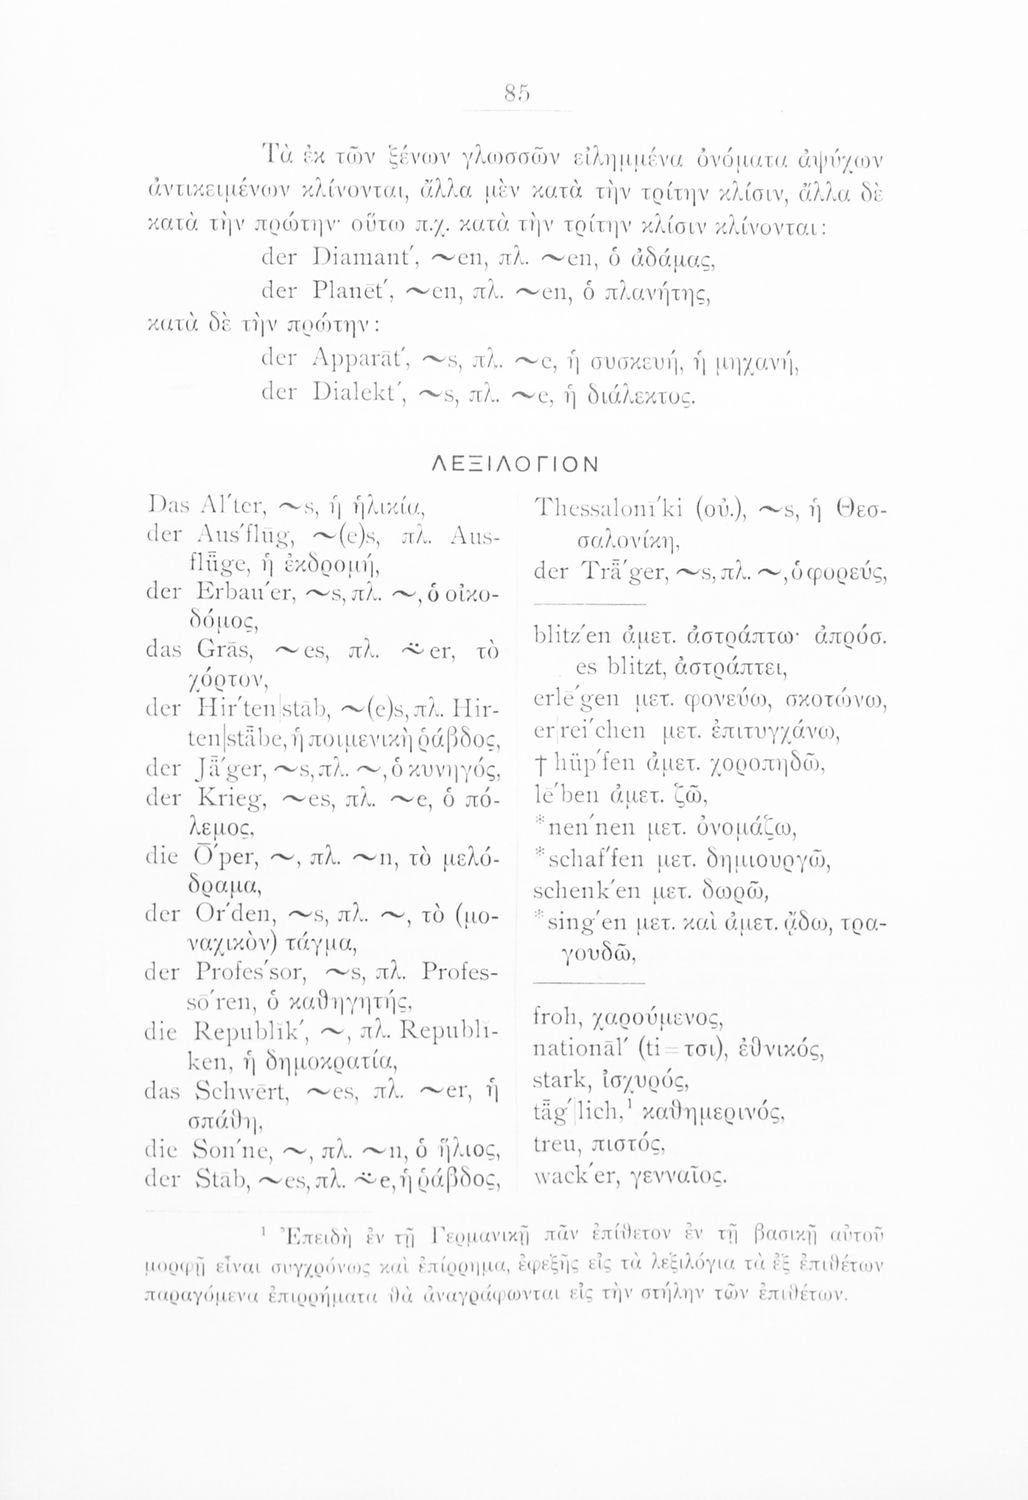 85
Τὰ ἐκ τῶν ξένων γλωσσῶν εἰλημμένα ὀνόματα ἀψύχων
ἀντικειμένων κλίνονται, ἄλλα μὲν κατὰ τὴν τρίτην κλίσιν, ἄλλα δὲ
κατὰ τὴν πρώτην· οὕτω π.χ. κατὰ τὴν τρίτην κλίσιν κλίνονται:
der Diamant′, ~en, πλ. ~en, ὁ ἀδάμας,
der Planēt′, ~en, πλ. ~en, ὁ πλανήτης,
κατὰ δὲ τὴν πρώτην:
der Apparāt′, ~s, πλ. ~e, ἡ συσκευή, ἡ μηχανή,
der Dialekt′, ~s, πλ. ~e, ἡ διάλεκτος.
ΛΕΞΙΛΟΓΙΟΝ
Das Al′ter, ~s, ἡ ἡλικία,
der Aus′flūg, ~(e)s, πλ. Aus-
flǖge, ἡ ἐκδρομή,
der Erbau′er, ~s, πλ. ~, ὁ οἰκο-
δόμος,
das Grās, ~es, πλ. ~̈er, τὸ
χόρτον,
der Hir′ten|stāb, ~(e)s, πλ. Hir-
ten|stǟbe, ἡ ποιμενικὴ ῥάβδος,
der Jǟ′ger, ~s, πλ. ~, ὁ κυνηγός,
der Krieg, ~es, πλ. ~e, ὁ πό-
λεμος,
die Ō′per, ~, πλ. ~n, τὸ μελό-
δραμα,
der Or′den, ~s, πλ. ~, τὸ (μο-
ναχικὸν) τάγμα,
der Profes′sor, ~s, πλ. Profes-
sō′ren, ὁ καθηγητής,
die Republīk′, ~, πλ. Republī-
ken, ἡ δημοκρατία,
das Schwērt, ~es, πλ. ~er, ἡ
σπάθη,
die Son′ne, ~, πλ. ~n, ὁ ἥλιος,
der Stāb, ~es, πλ. ~̈e, ἡ ῥάβδος,
Thessalonī′ki (οὐ.), ~s, ἡ Θεσ-
σαλονίκη,
der Trǟ′ger, ~s, πλ. ~, ὁ φορεύς,
blitz′en ἀμετ. ἀστράπτω· ἀπρόσ.
es blitzt, ἀστράπτει,
erlē′gen μετ. φονεύω, σκοτώνω,
er|rei′chen μετ. ἐπιτυγχάνω,
† hüp′fen ἀμετ. χοροπηδῶ,
lē′ben ἀμετ. ζῶ,
*nen′nen μετ. ὀνομάζω,
*schaf′fen μετ. δημιουργῶ,
schenk′en μετ. δωρῶ,
*sing′en μετ. καὶ ἀμετ. ᾄδω, τρα-
γουδῶ,
froh, χαρούμενος,
nationāl′ (ti = τσι), ἐθνικός,
stark, ἰσχυρός,
tǟg′|lich,¹ καθημερινός,
treu, πιστός,
wack′er, γενναῖος.
¹ Ἐπειδὴ ἐν τῇ Γερμανικῇ πᾶν ἐπίθετον ἐν τῇ βασικῇ αὐτοῦ
μορφῇ εἶναι συγχρόνως καὶ ἐπίρρημα, ἐφεξῆς εἰς τὰ λεξιλόγια τὰ ἐξ ἐπιθέτων
παραγόμενα ἐπιρρήματα θὰ ἀναγράφωνται εἰς τὴν στήλην τῶν ἐπιθέτων.